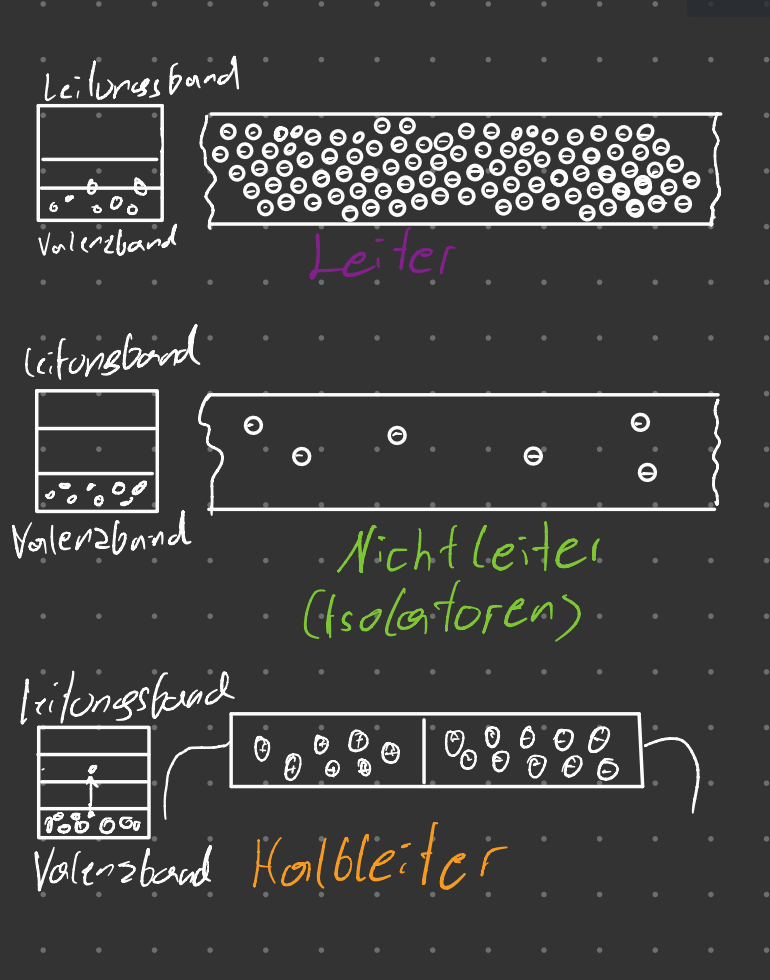 Leitungsband
Valenzband
Leiter
Leitungsband
Valenzband
Nichtleiter
(Isolatoren)
Leitungsband
Valenzband
Halbleiter